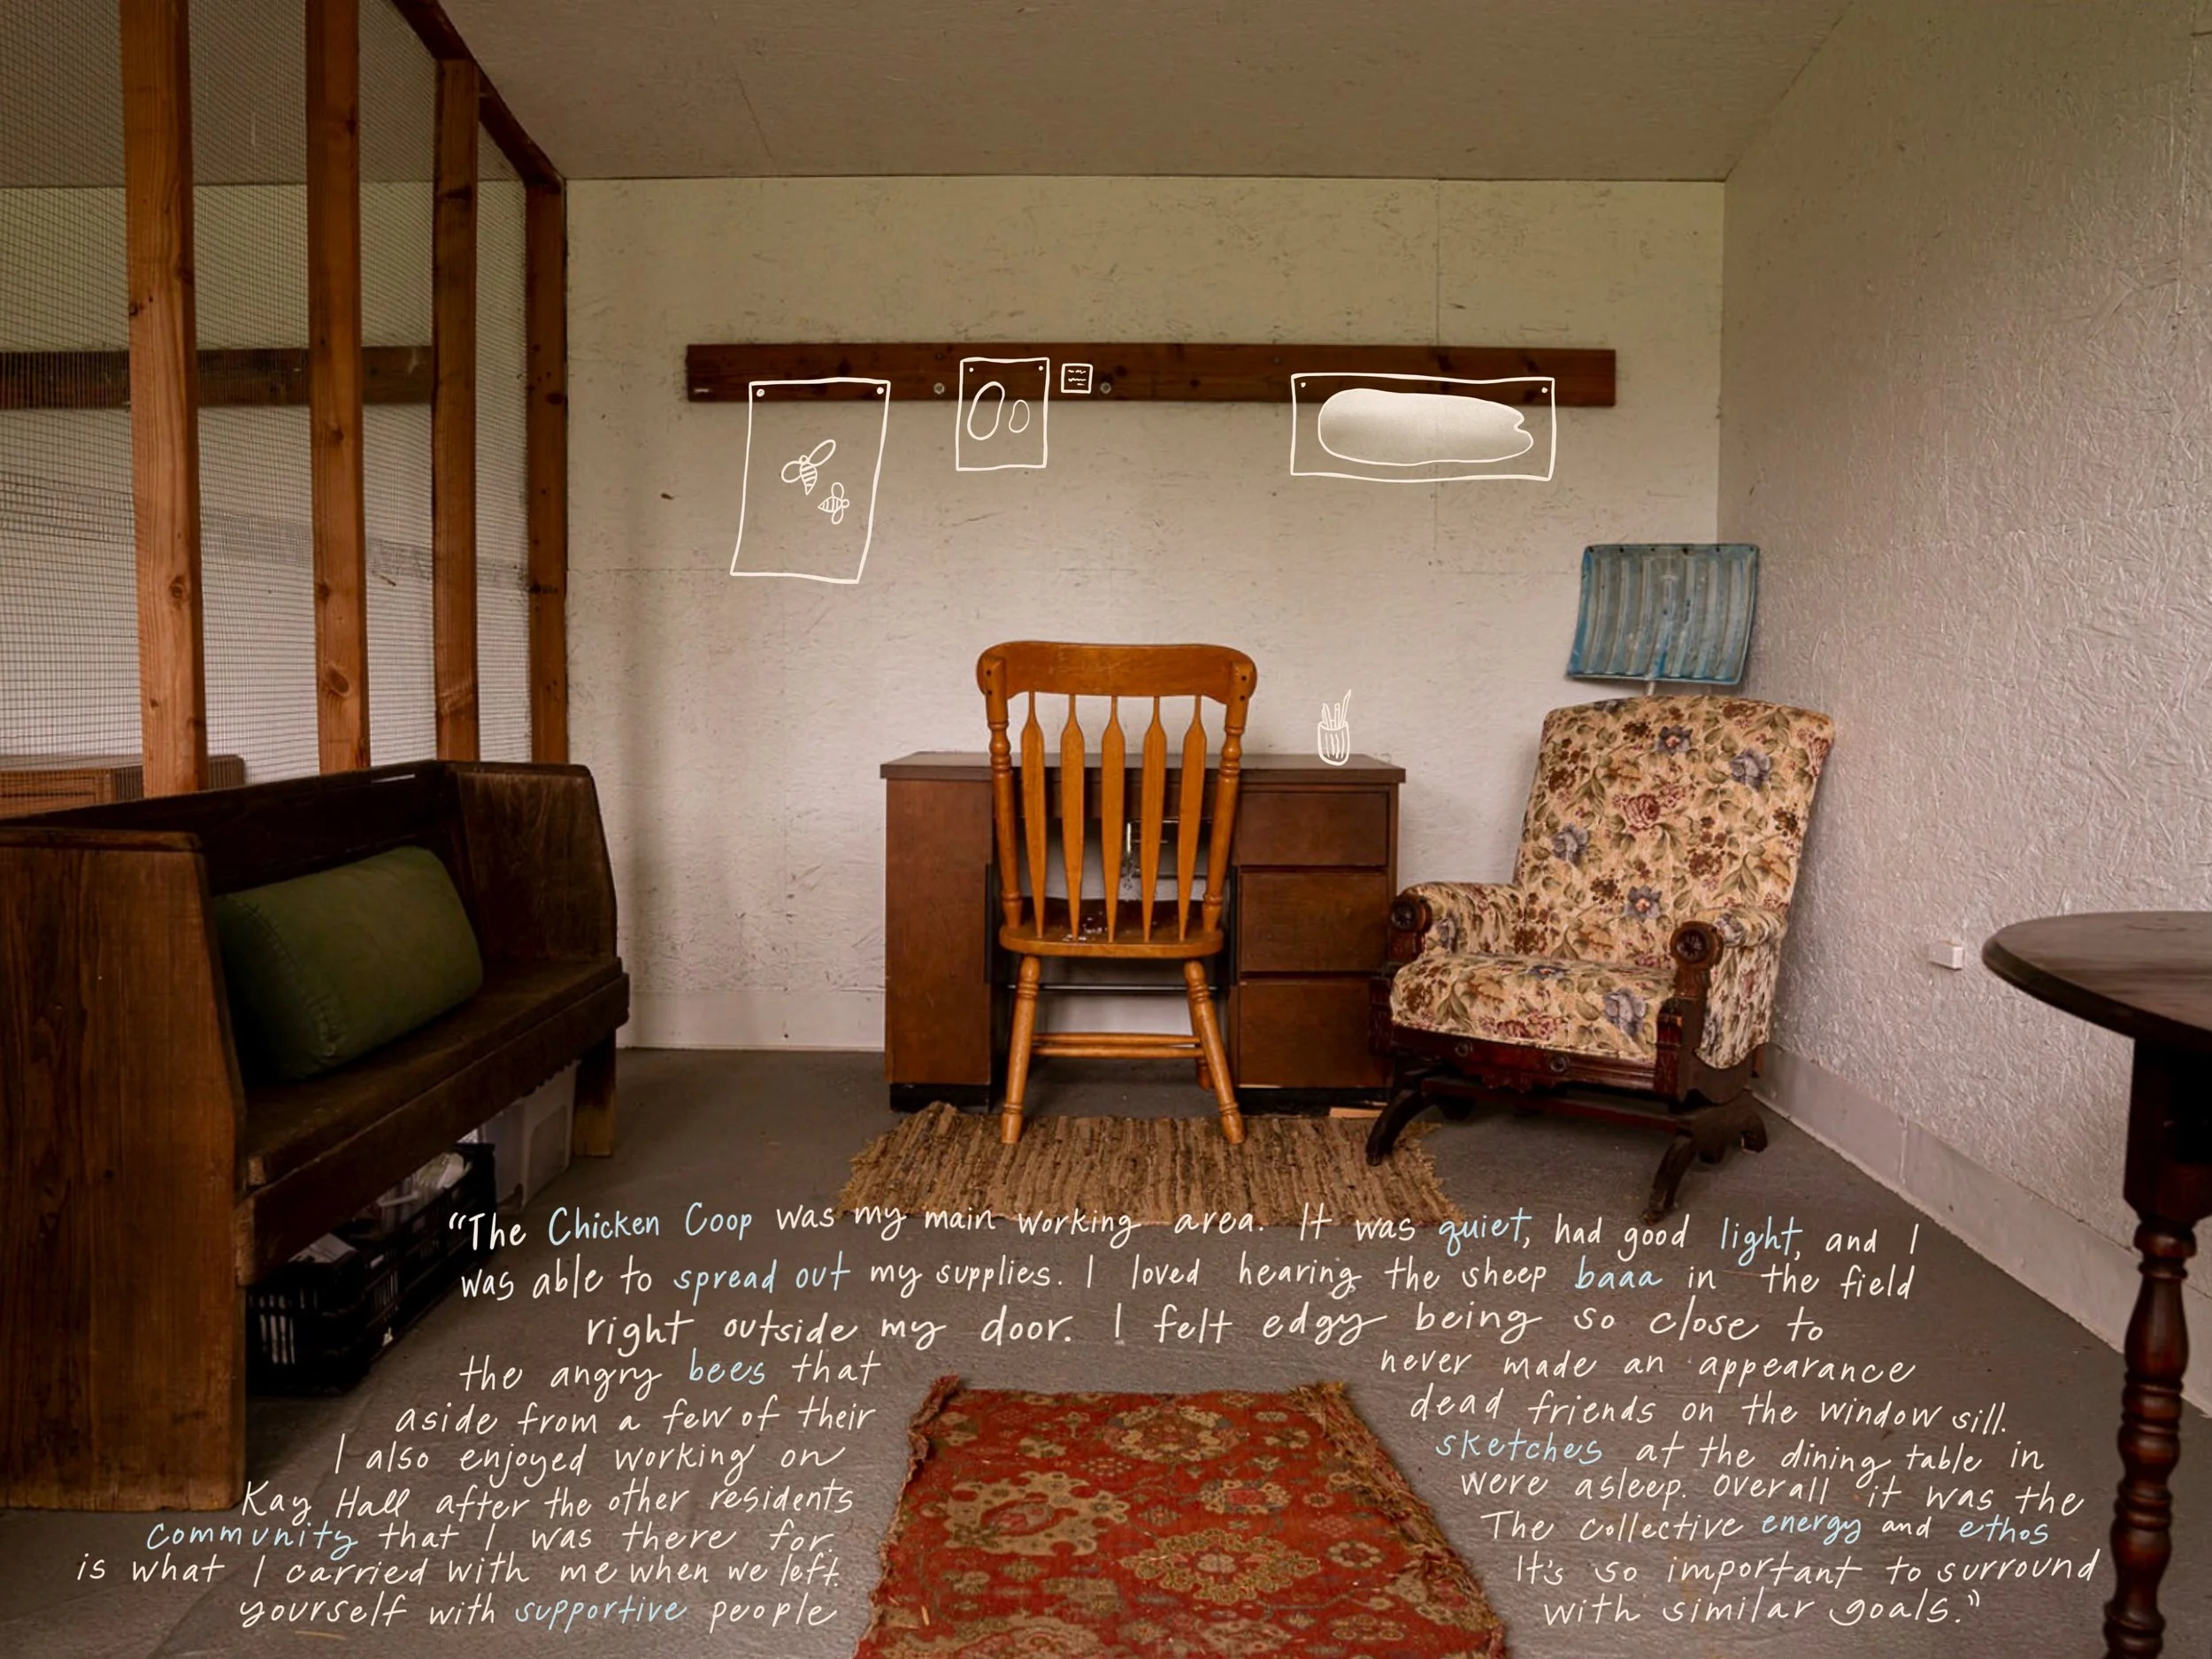 “The Chicken Coop was my main working area. It was quiet, had good light, and I
was able to spread out my supplies. I loved hearing the sheep baaa in the field
right outside my door. I felt edgy being so close to
the angry bees that never made an appearance
aside from a few of their dead friends on the window sill.
I also enjoyed working on sketches at the dining table in
Kay Hall after the other residents were asleep. Overall it was the
community that I was there for. The collective energy and ethos
is what I carried with me when we left. It's so important to surround
yourself with supportive people with similar goals.”